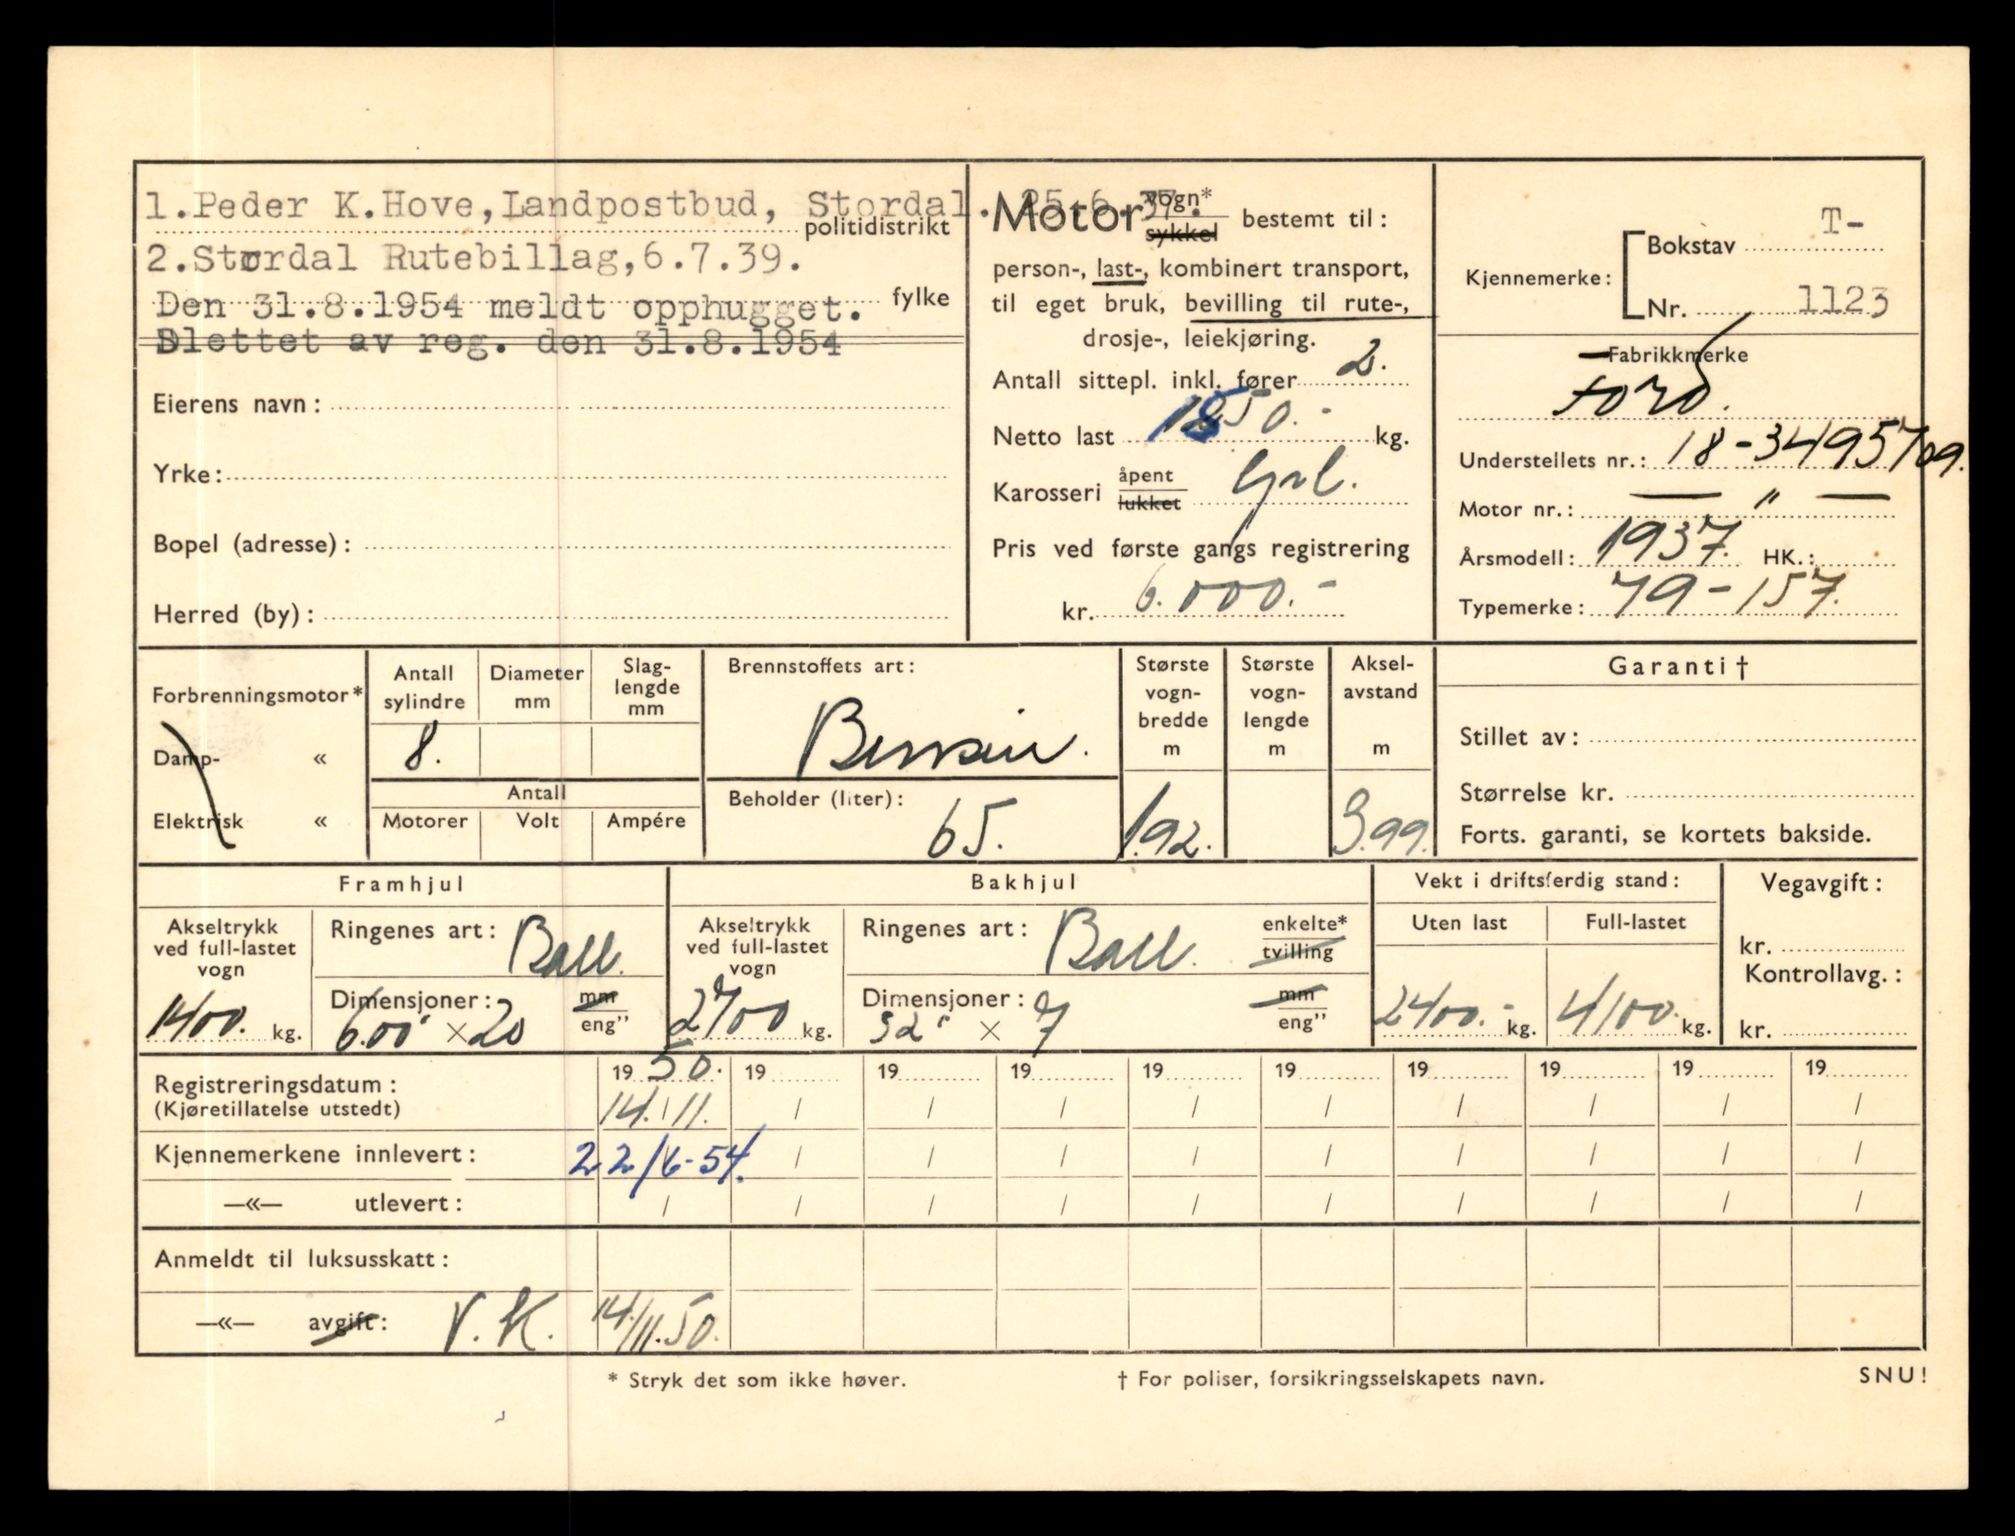 1.Peder K.Hove,Landpostbud, Stordal. 25.6.37.
politidistrikt
2.Stordal Rutebillag,6.7.39.
Den 31.8.1954 meldt opphugget.
fylke
Slettet av reg. den 31.8.1954
Eierens navn:
Yrke:
Bopel (adresse):
Herred (by):
Motor vogn* sykkel bestemt til:
person-, last-, kombinert transport,
til eget bruk, bevilling til rute-,
drosje-, leiekjøring.
Antall sittepl. inkl. fører 2.
Netto last kg.
Karosseri åpent lukket
Pris ved første gangs registrering
kr. 6.000.-
Kjennemerke: Bokstav T-
Nr. 1123
Fabrikkmerke
Ford.
Understellets nr.: 18-3495709.
Motor nr.: — " —
Årsmodell: 1937. HK.:
Typemerke: 79-157.
Forbrenningsmotor*
Damp- «
Elektrisk «
Antall sylindre
8.
Diameter mm
Slag-lengde mm
Antall
Motorer Volt Ampére
Brennstoffets art:
Bensin.
Beholder (liter):
65.
Største vogn-bredde m
1.92.
Største vogn-lengde m
Aksel-avstand m
3.99.
Garanti †
Stillet av:
Størrelse kr.
Forts. garanti, se kortets bakside.
Framhjul
Akseltrykk ved full-lastet vogn
1400. kg.
Ringenes art: Ball.
Dimensjoner: mm eng"
6.00" × 20
Bakhjul
Akseltrykk ved full-lastet vogn
2700 kg.
Ringenes art: Ball. enkelte* tvilling
Dimensjoner: mm eng"
32" × 7
Vekt i driftsferdig stand:
Uten last Full-lastet
2400.- kg. 4100. kg.
Vegavgift:
kr.
Kontrollavg.:
kr.
Registreringsdatum: 19 50. 19 19 19 19 19 19 19 19 19
(Kjøretillatelse utstedt) 14./11. / / / / / / / / /
Kjennemerkene innlevert: 22/6-54. / / / / / / / / /
—«— utlevert: / / / / / / / / / /
Anmeldt til luksusskatt:
—«— avgift: V.K. 14/11.50.
* Stryk det som ikke høver.
† For poliser, forsikringsselskapets navn.
SNU!